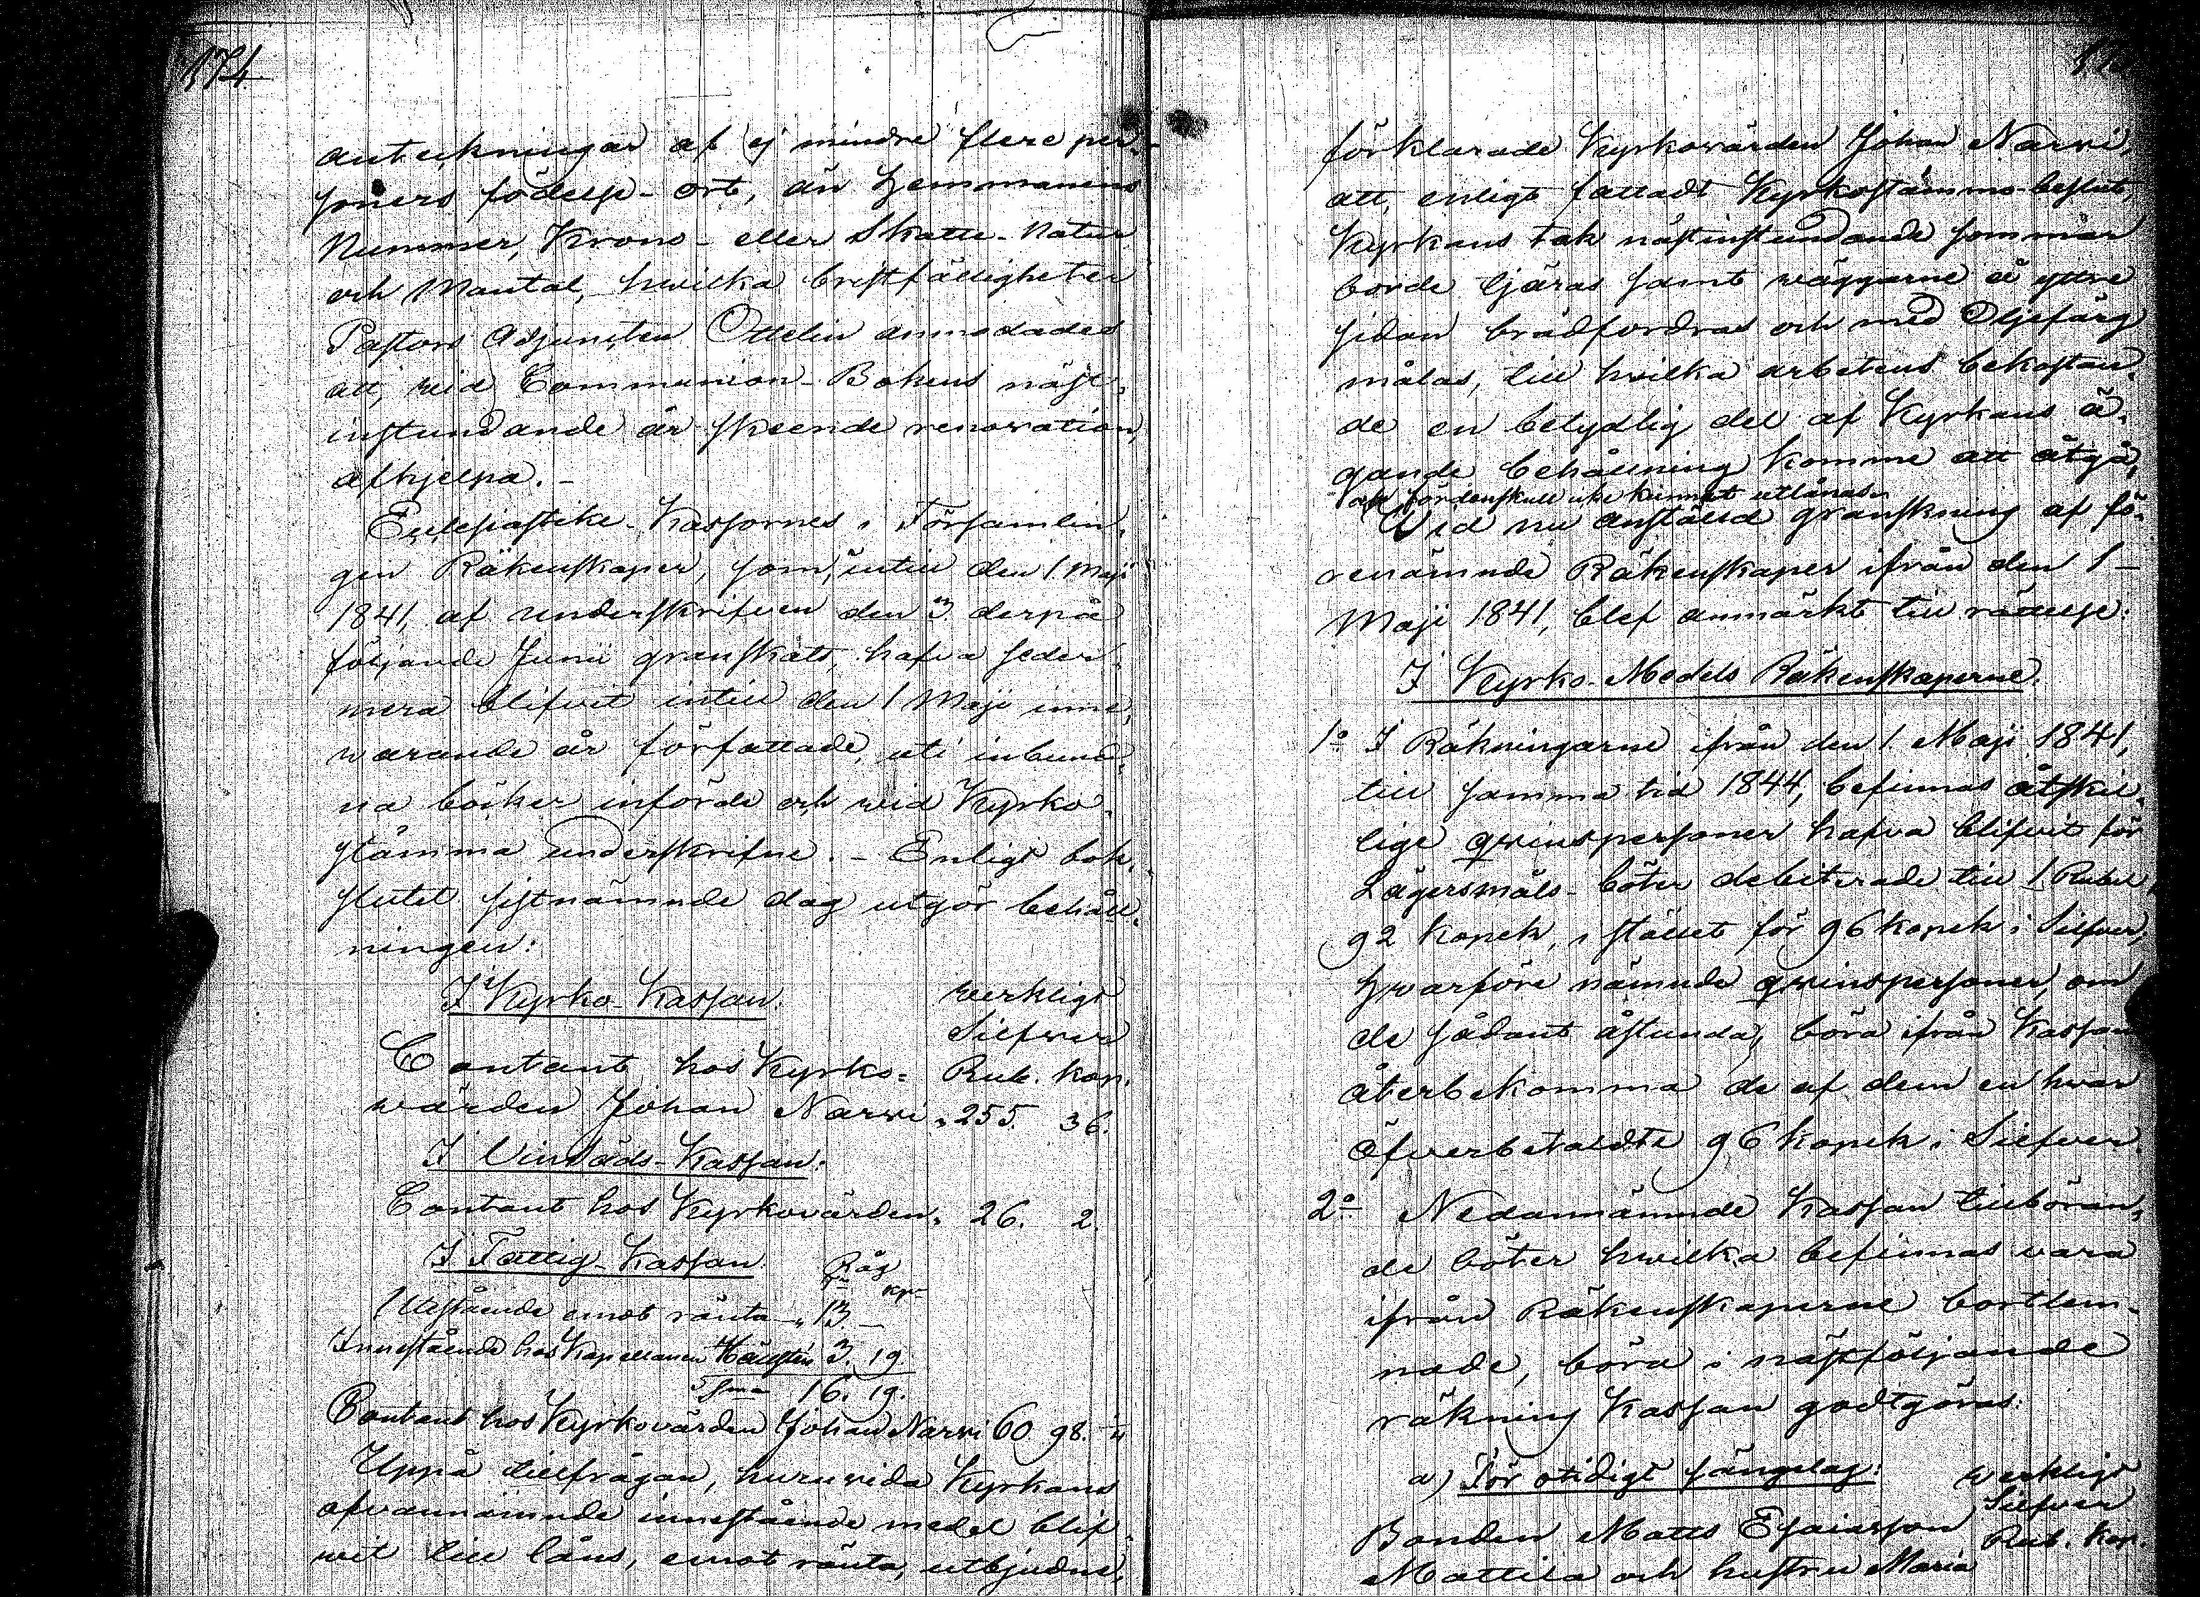 174.
anteckningar af ej mindre flere per-
soners födelse-ort, än Hemmanens
Nummer, Krono- eller Skatte-Natur
och Mantal, hwilka bristfälligheter
Pastors Adjuncten Ottelin anmodades
att, wid Communion-Bokens näst-
instundande år skeende renovation,
afhjelpa.-
Ecclesiastike-Kassornes i Församlin-
gen Räkenskaper, som, intill den 1. Maji
1841, af underskrifven den 3. derpå
följande Junii granskats, hafva seder-
mera blifvit intill den 1 Maji inne-
warande år författade, uti inbund-
na böcker införde och wid Kyrko-
stämma underskrifne. - Enligt bok-
slutet sistnämnde dag utgör behåll-
ningen:
I Kyrko-Kassan. werkligt
Silfver
Contant hos Kyrko- Rub. Kop.
wärden Johan Narwi " 255. 36.
I Vinsäds-Kassan:
Contant hos Kyrkovärden " 26. 2.
I Fattig-Kassan. Råg
Tr kpr
Utestående emot ränta " 13. -
Innestående hos Kapellanen Hällsten 3. 19
S:ma 16. 19.
Contant hos Kyrkovärden Johan Narwi 60 98.
Uppå tillfrågan, huruvida Kyrkans
ofvannämnde innestående medel blif-
wit till låns, emot ränta, utbjudne,
förklarade Kyrkovärden Johan Narwi,
att, enligt fattadt Kyrkostämmo-beslut,
Kyrkans tak nästinstundande sommar
borde tjäras samt wäggarne å yttre
sidan brädfordras och med Oljefärg
målas, till hvilka arbetens bekostan-
de en betydlig del af Kyrkans ä-
gande behållning komme att åtgå,
och fördenskull icke kunnat utlånas.
Wid nu anstäld granskning af fö-
renämnde Räkenskaper ifrån den 1
Maji 1841, blef anmärkt till rättelse:
I Kyrko-Medels Räkenskaperne.
1:o I Räkningarne ifrån den 1. Maji 1841,
till samma tid 1844, befinnas åtskil-
lige qwinspersoner hafva blifvit för
Lägersmåls-böter debiterade till 1 Rubel
92 Kopek, i stället för 96 kopek i Silfver,
Hwarföre nämnde qwinspersoner, om
de sådant åstunda, böra ifrån Kassan
återbekomma de af dem en hvar
öfverbetaldte 96 kopek i Silfver.
2:o Nedannämnde Kassan tillhöran-
de böter hwilka befinnas vara
ifrån Räkenskaperne bortlem-
nade, böra i nästföljande
räkning Kassan godtgöras:
a) För otidigt sängelag: werkligt
Silfver
Bonden Matts Esaiasson Rub. Kop.
Mattila och hustru Maria